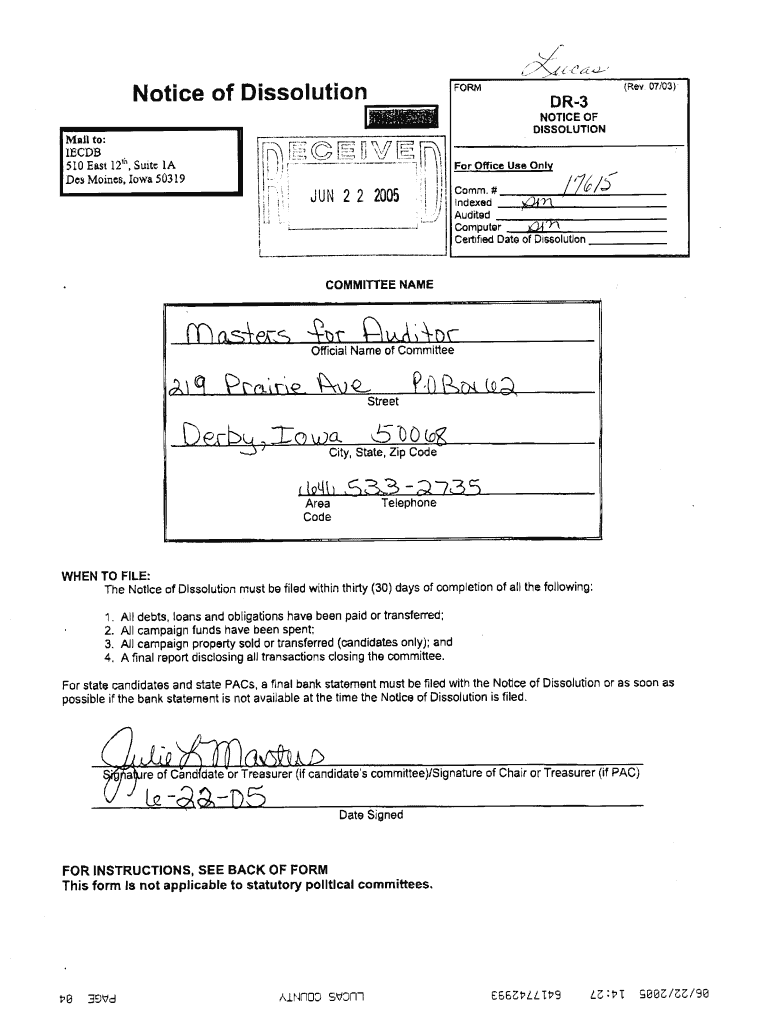 Lucas
Notice of Dissolution
FORM (Rev. 07/03)
DR-3
NOTICE OF
DISSOLUTION
Mail to:
IECDB
510 East 12th, Suite 1A
Des Moines, Iowa 50319
RECEIVED
JUN 22 2005
For Office Use Only
Comm. # 17615
Indexed
Audited
Computer
Certified Date of Dissolution
COMMITTEE NAME
Masters for Auditor
Official Name of Committee
219 Prairie Ave P.O Box 62
Street
Derby, Iowa 50068
City, State, Zip Code
(641) 533-2735
Area Telephone
Code
WHEN TO FILE:
The Notice of Dissolution must be filed within thirty (30) days of completion of all the following:
1. All debts, loans and obligations have been paid or transferred;
2. All campaign funds have been spent;
3. All campaign property sold or transferred (candidates only); and
4. A final report disclosing all transactions closing the committee.
For state candidates and state PACs, a final bank statement must be filed with the Notice of Dissolution or as soon as
possible if the bank statement is not available at the time the Notice of Dissolution is filed.
Julie L Masters
Signature of Candidate or Treasurer (if candidate's committee)/Signature of Chair or Treasurer (if PAC)
6-22-05
Date Signed
FOR INSTRUCTIONS, SEE BACK OF FORM
This form is not applicable to statutory political committees.
06/22/2005 14:27 6417742993 LUCAS COUNTY PAGE 04